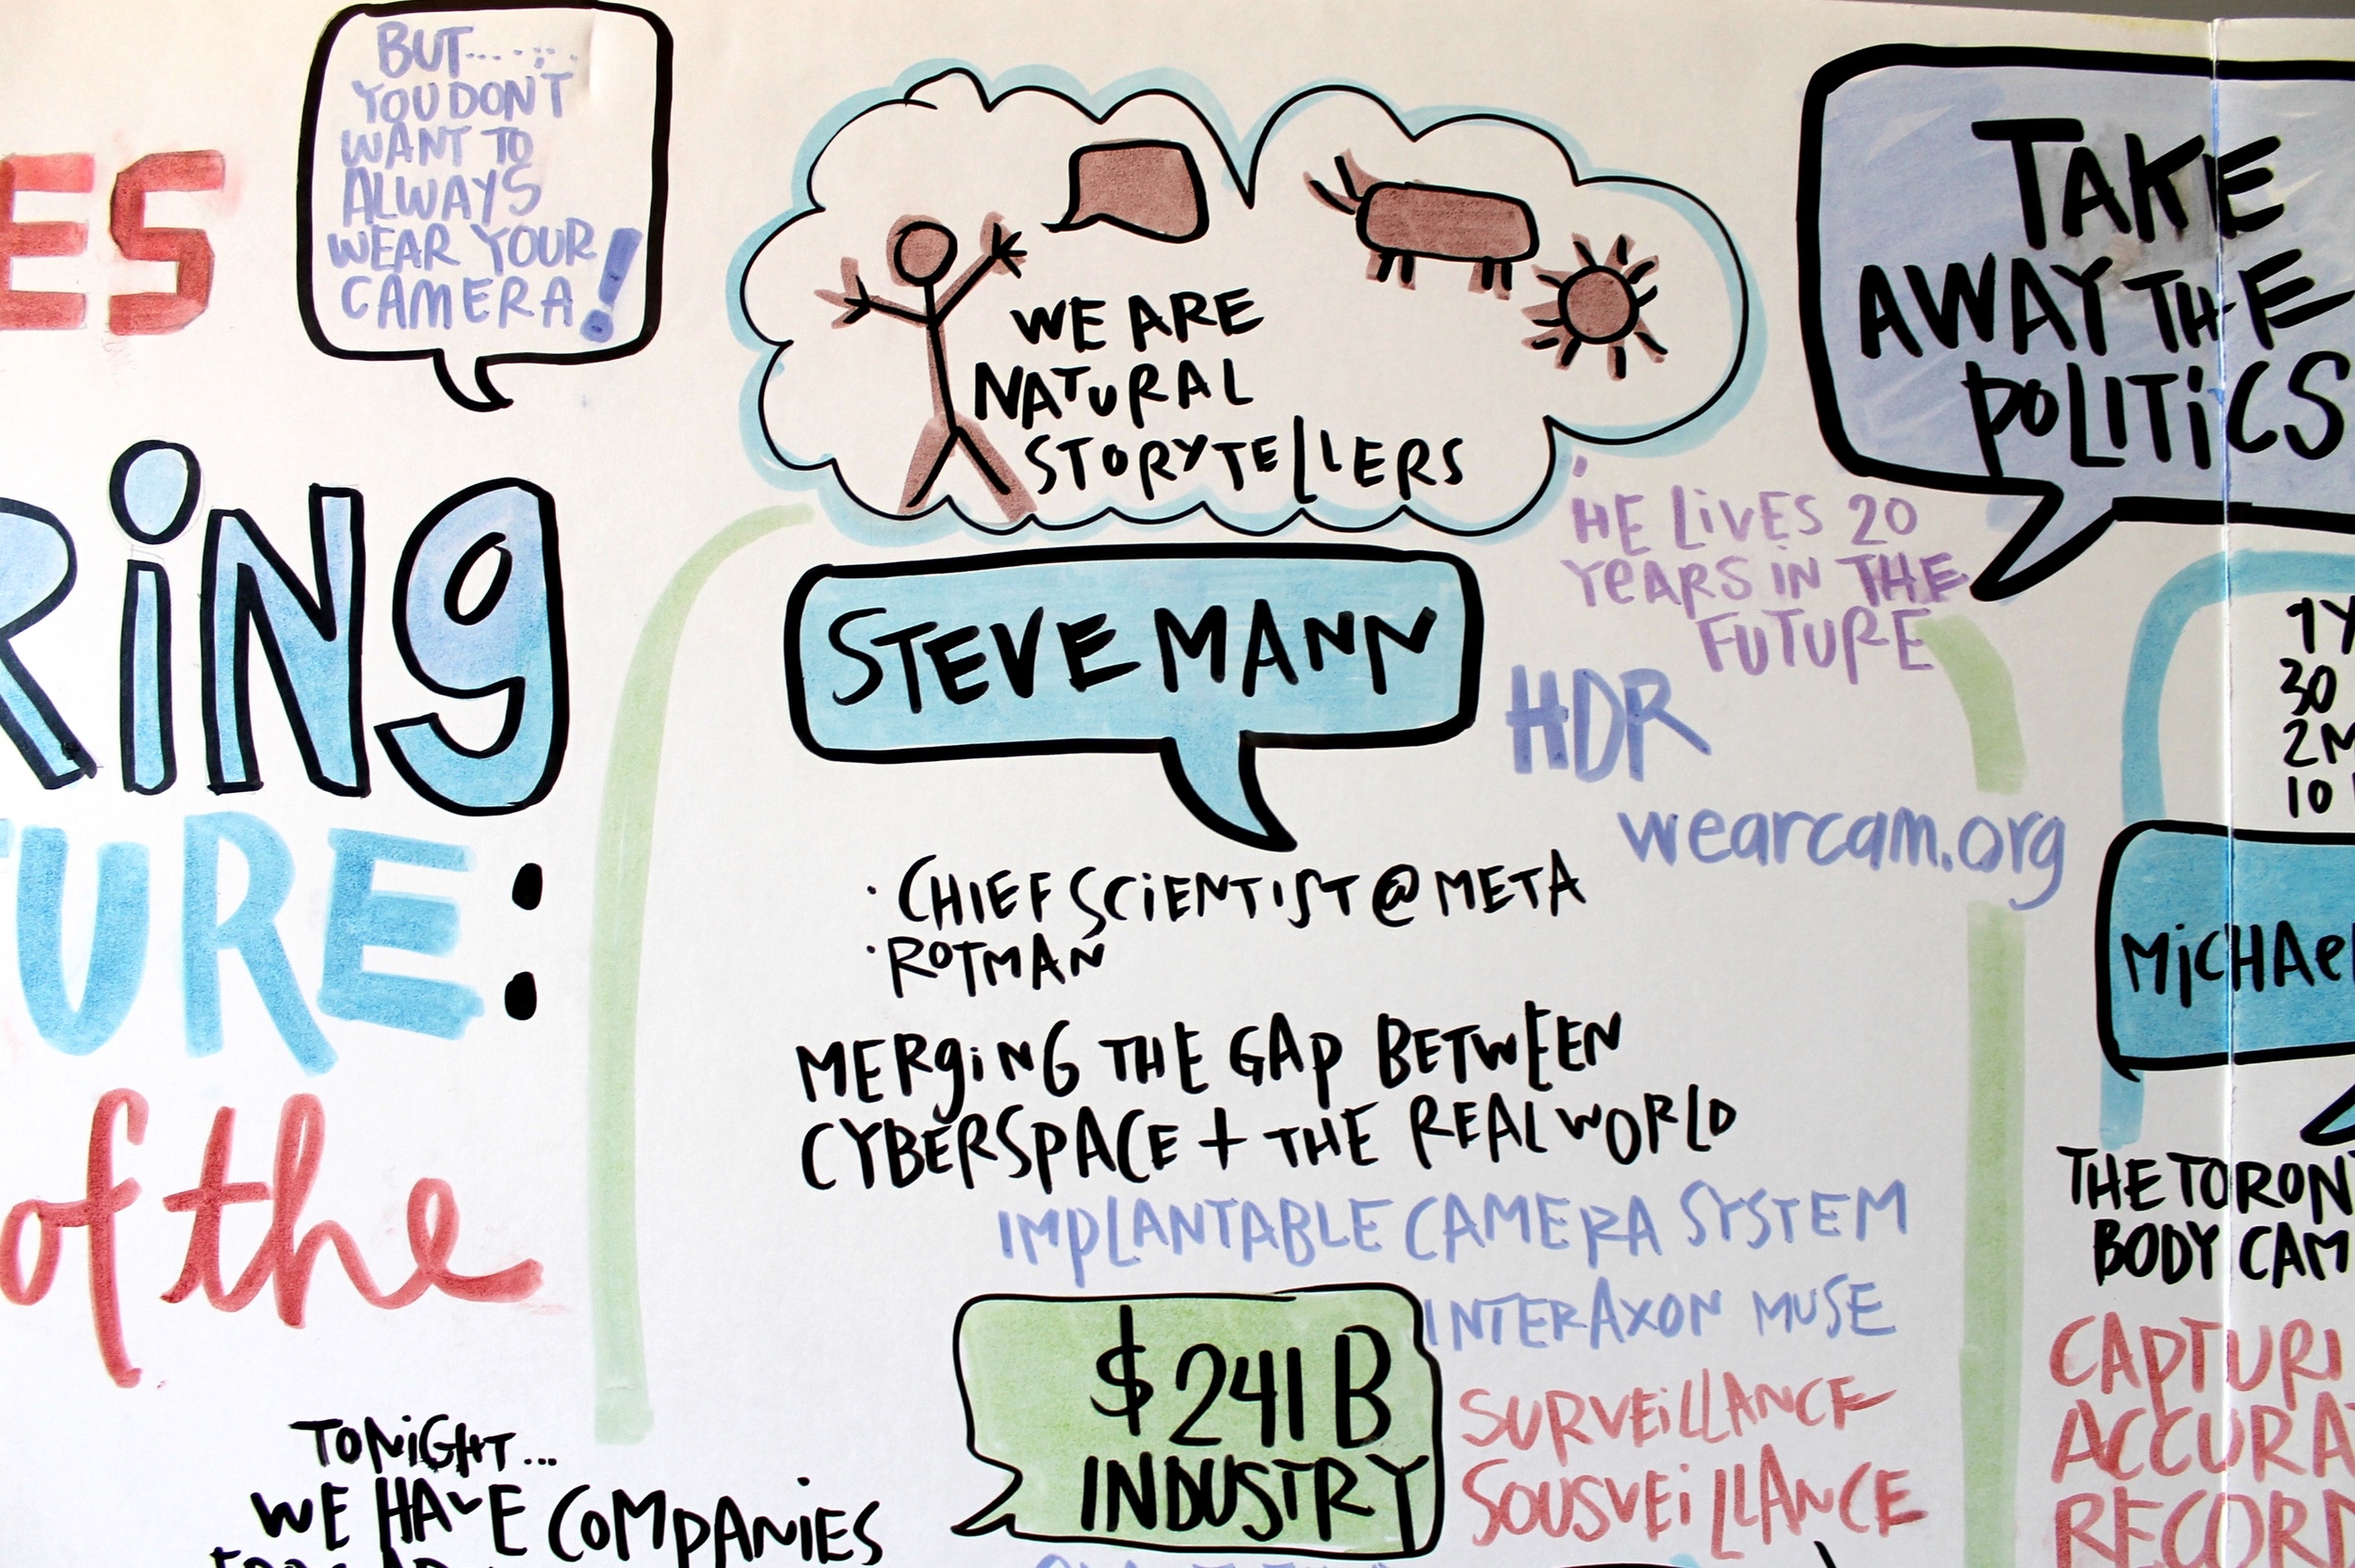 ES
BUT........
YOU DON'T
WANT TO
ALWAYS
WEAR YOUR
CAMERA!
RiNg
TURE:
of the
TONiGHT...
WE HAVE COMPANiES
WE ARE
NATURAL
STORYTELLERS
STEVE MANN
HE LiVES 20
YEARS iN THE
FUTURE
HDR
wearcam.org
· CHiEF SCiENTiST @ META
· ROTMAN
MERgiNG THE GAP BETWEEN
CYBERSPACE + THE REAL WORLD
IMPLANTABLE CAMERA SYSTEM
INTERAXON MUSE
$241B
INDUSTRY
SURVEiLLANCE
SOUSVEiLLANCE
TAKE
AWAY THE
POLiTiCS
1Y
30
2M
10
MiCHAel
THE TORONT
BODY CAM
CAPTURI
ACCURA
RECOR